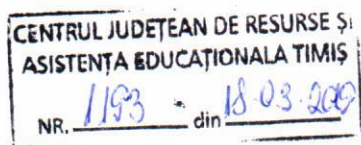 CENTRUL JUDEȚEAN DE RESURSE ȘI
ASISTENȚA EDUCAȚIONALA TIMIȘ
NR. 1193 din 18.03.2019